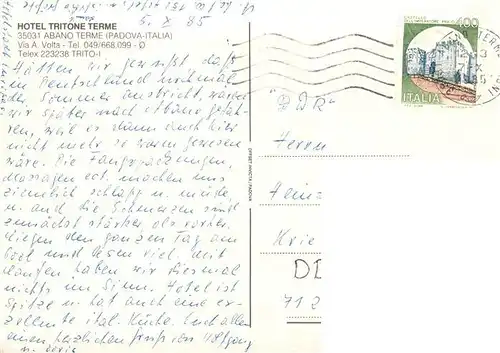 5. X. 85
HOTEL TRITONE TERME
35031 ABANO TERME (PADOVA-ITALIA)
Via A. Volta - Tel. 049/668.099 - Ø
Telex 223238 TRITO-I
Hätten wir gewußt, daß
in Deutschland nochmal
der Sommer ausbricht, wären
wir später nach Abano gefah-
ren, weil es dann auch hier
nicht mehr so warm gewesen
wäre. Die Fangopackungen,
Massagen ect. machen uns
ziemlich schlapp u. müde
u. auch die Schmerzen sind
zunächst stärker als vorher.
liegen den ganzen Tag am
Pool und lesen viel. Weit
laufen haben wir diesmal
nichts im Sinn. Hotel ist
Spitze u. hat auch eine ex-
zellente ital. Küche. Euch allen
einen herzlichen Gruß von Wolfgang
u. Doris
400
ITALIA
"DDR"
Herrn
Heinz
Krie
DD
712